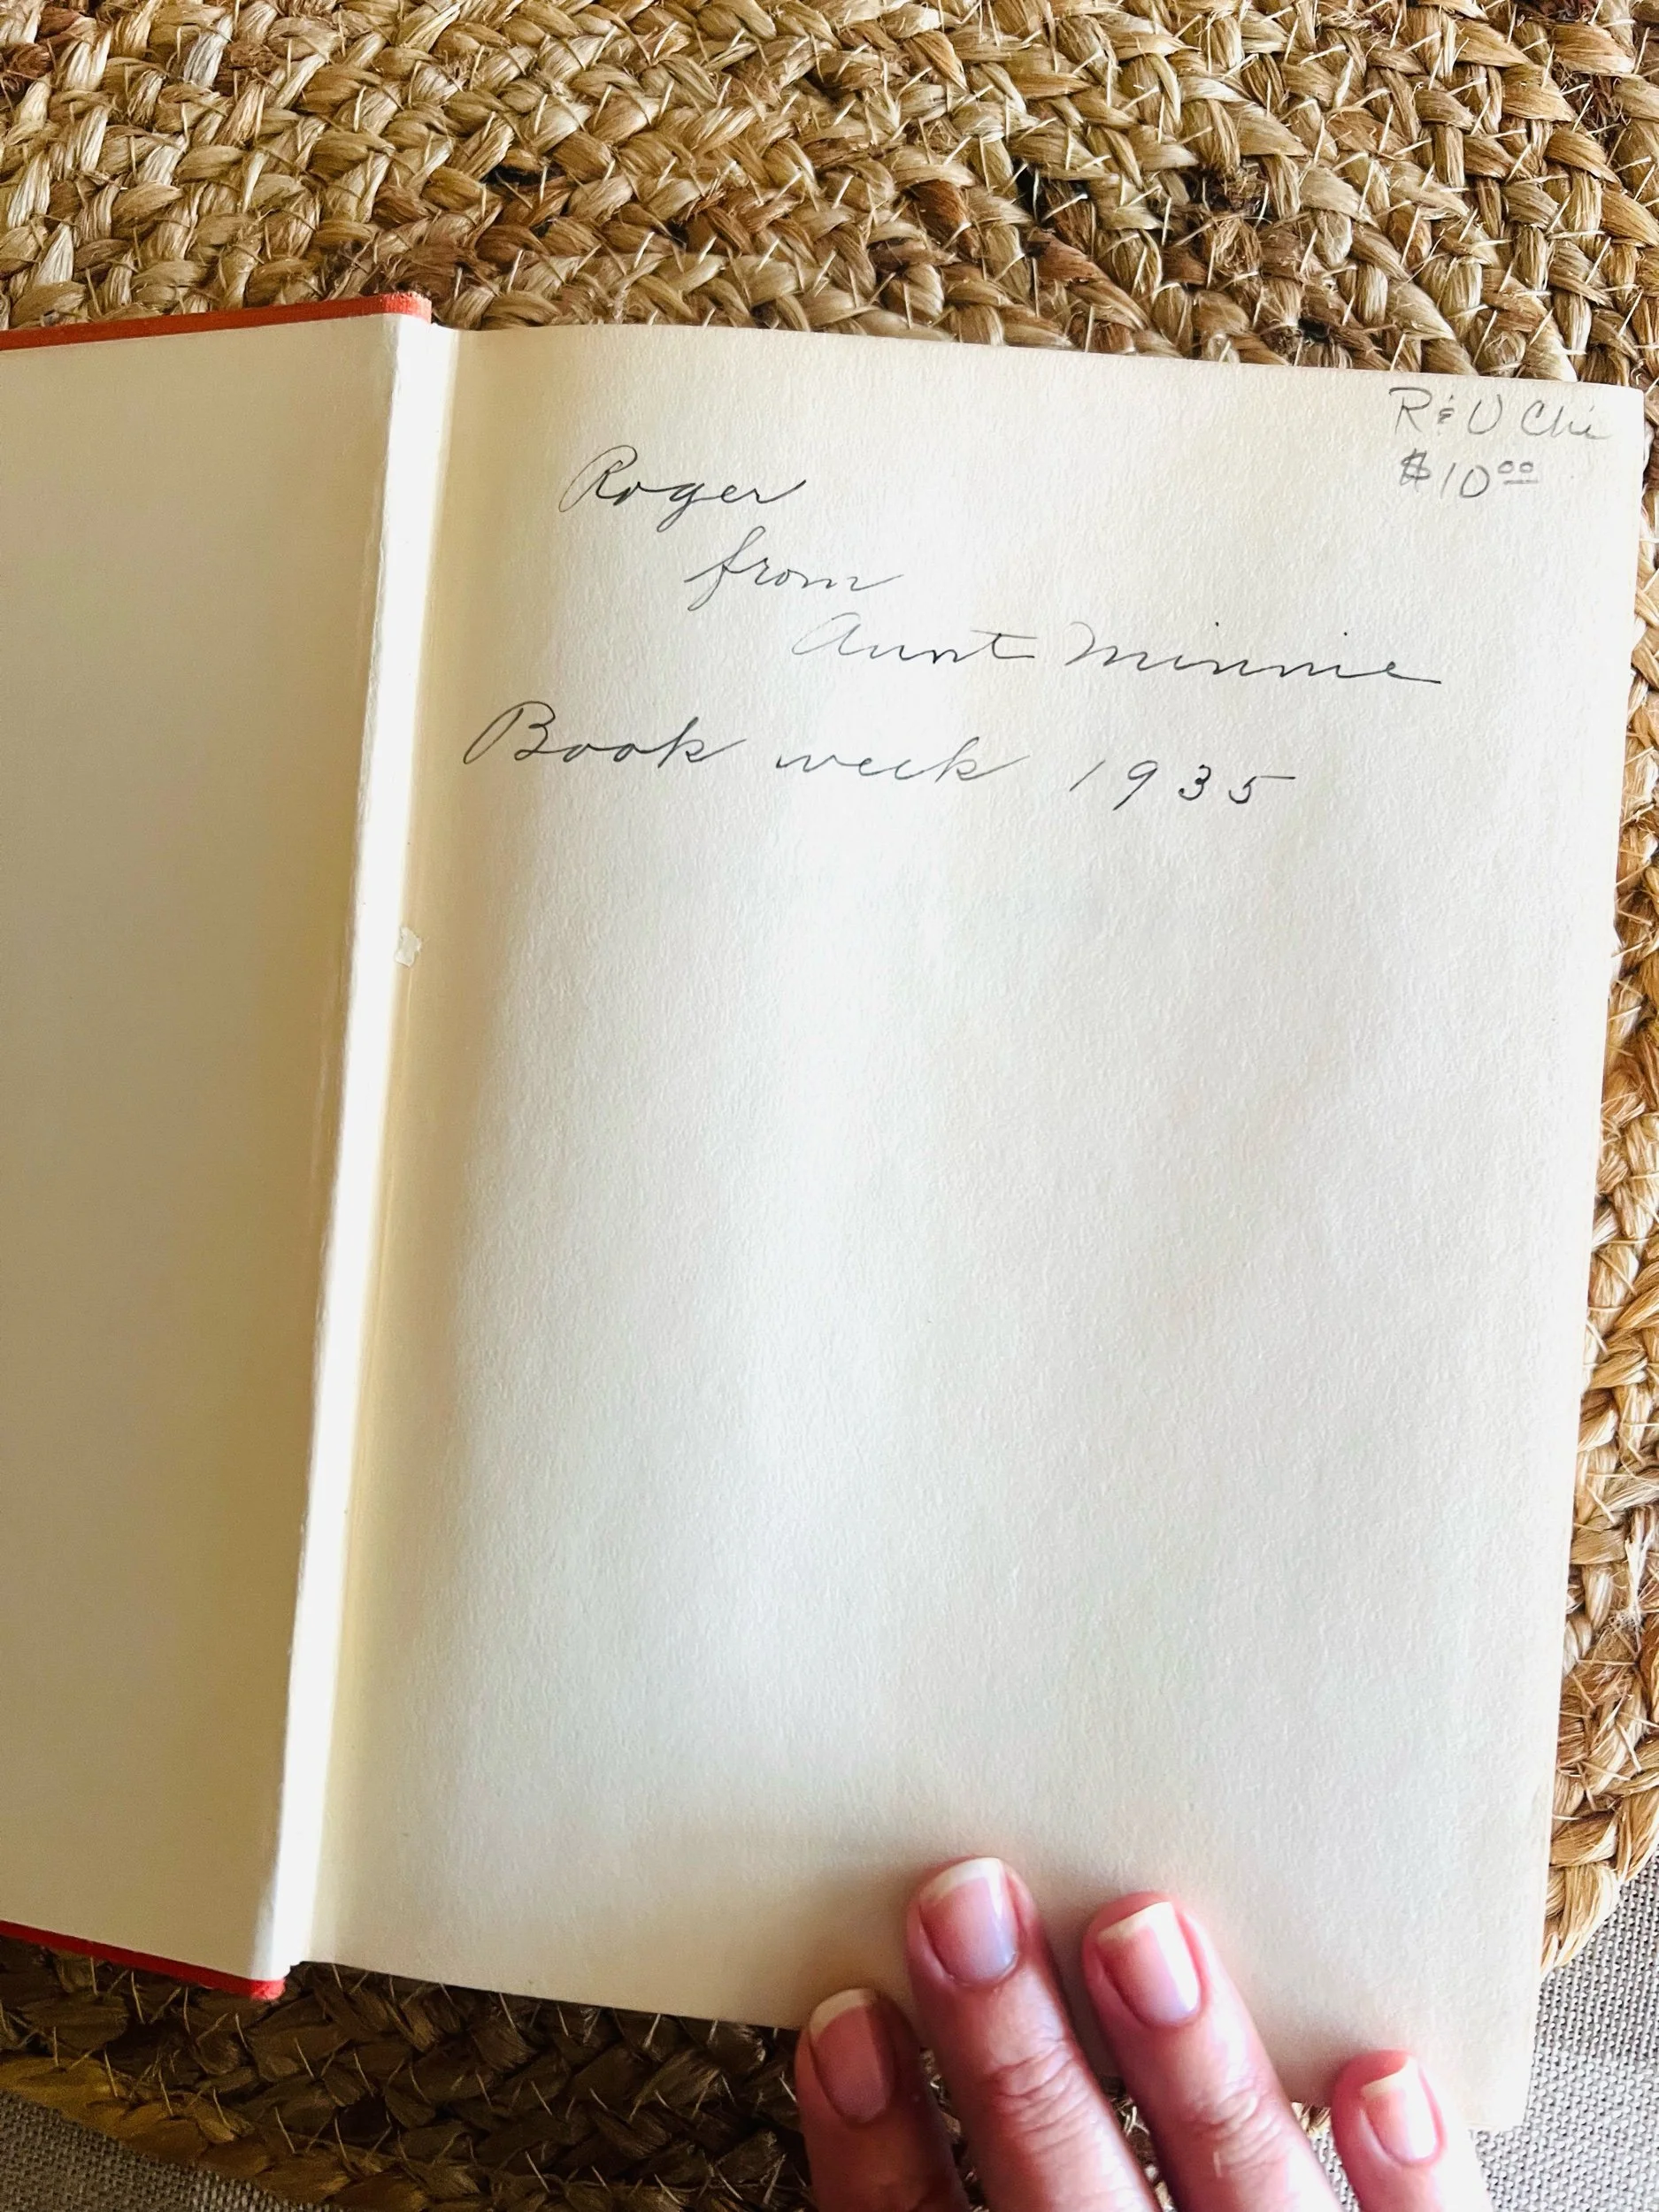 R & U Chi
$10.00
Roger
from
Aunt Minnie
Book week 1935